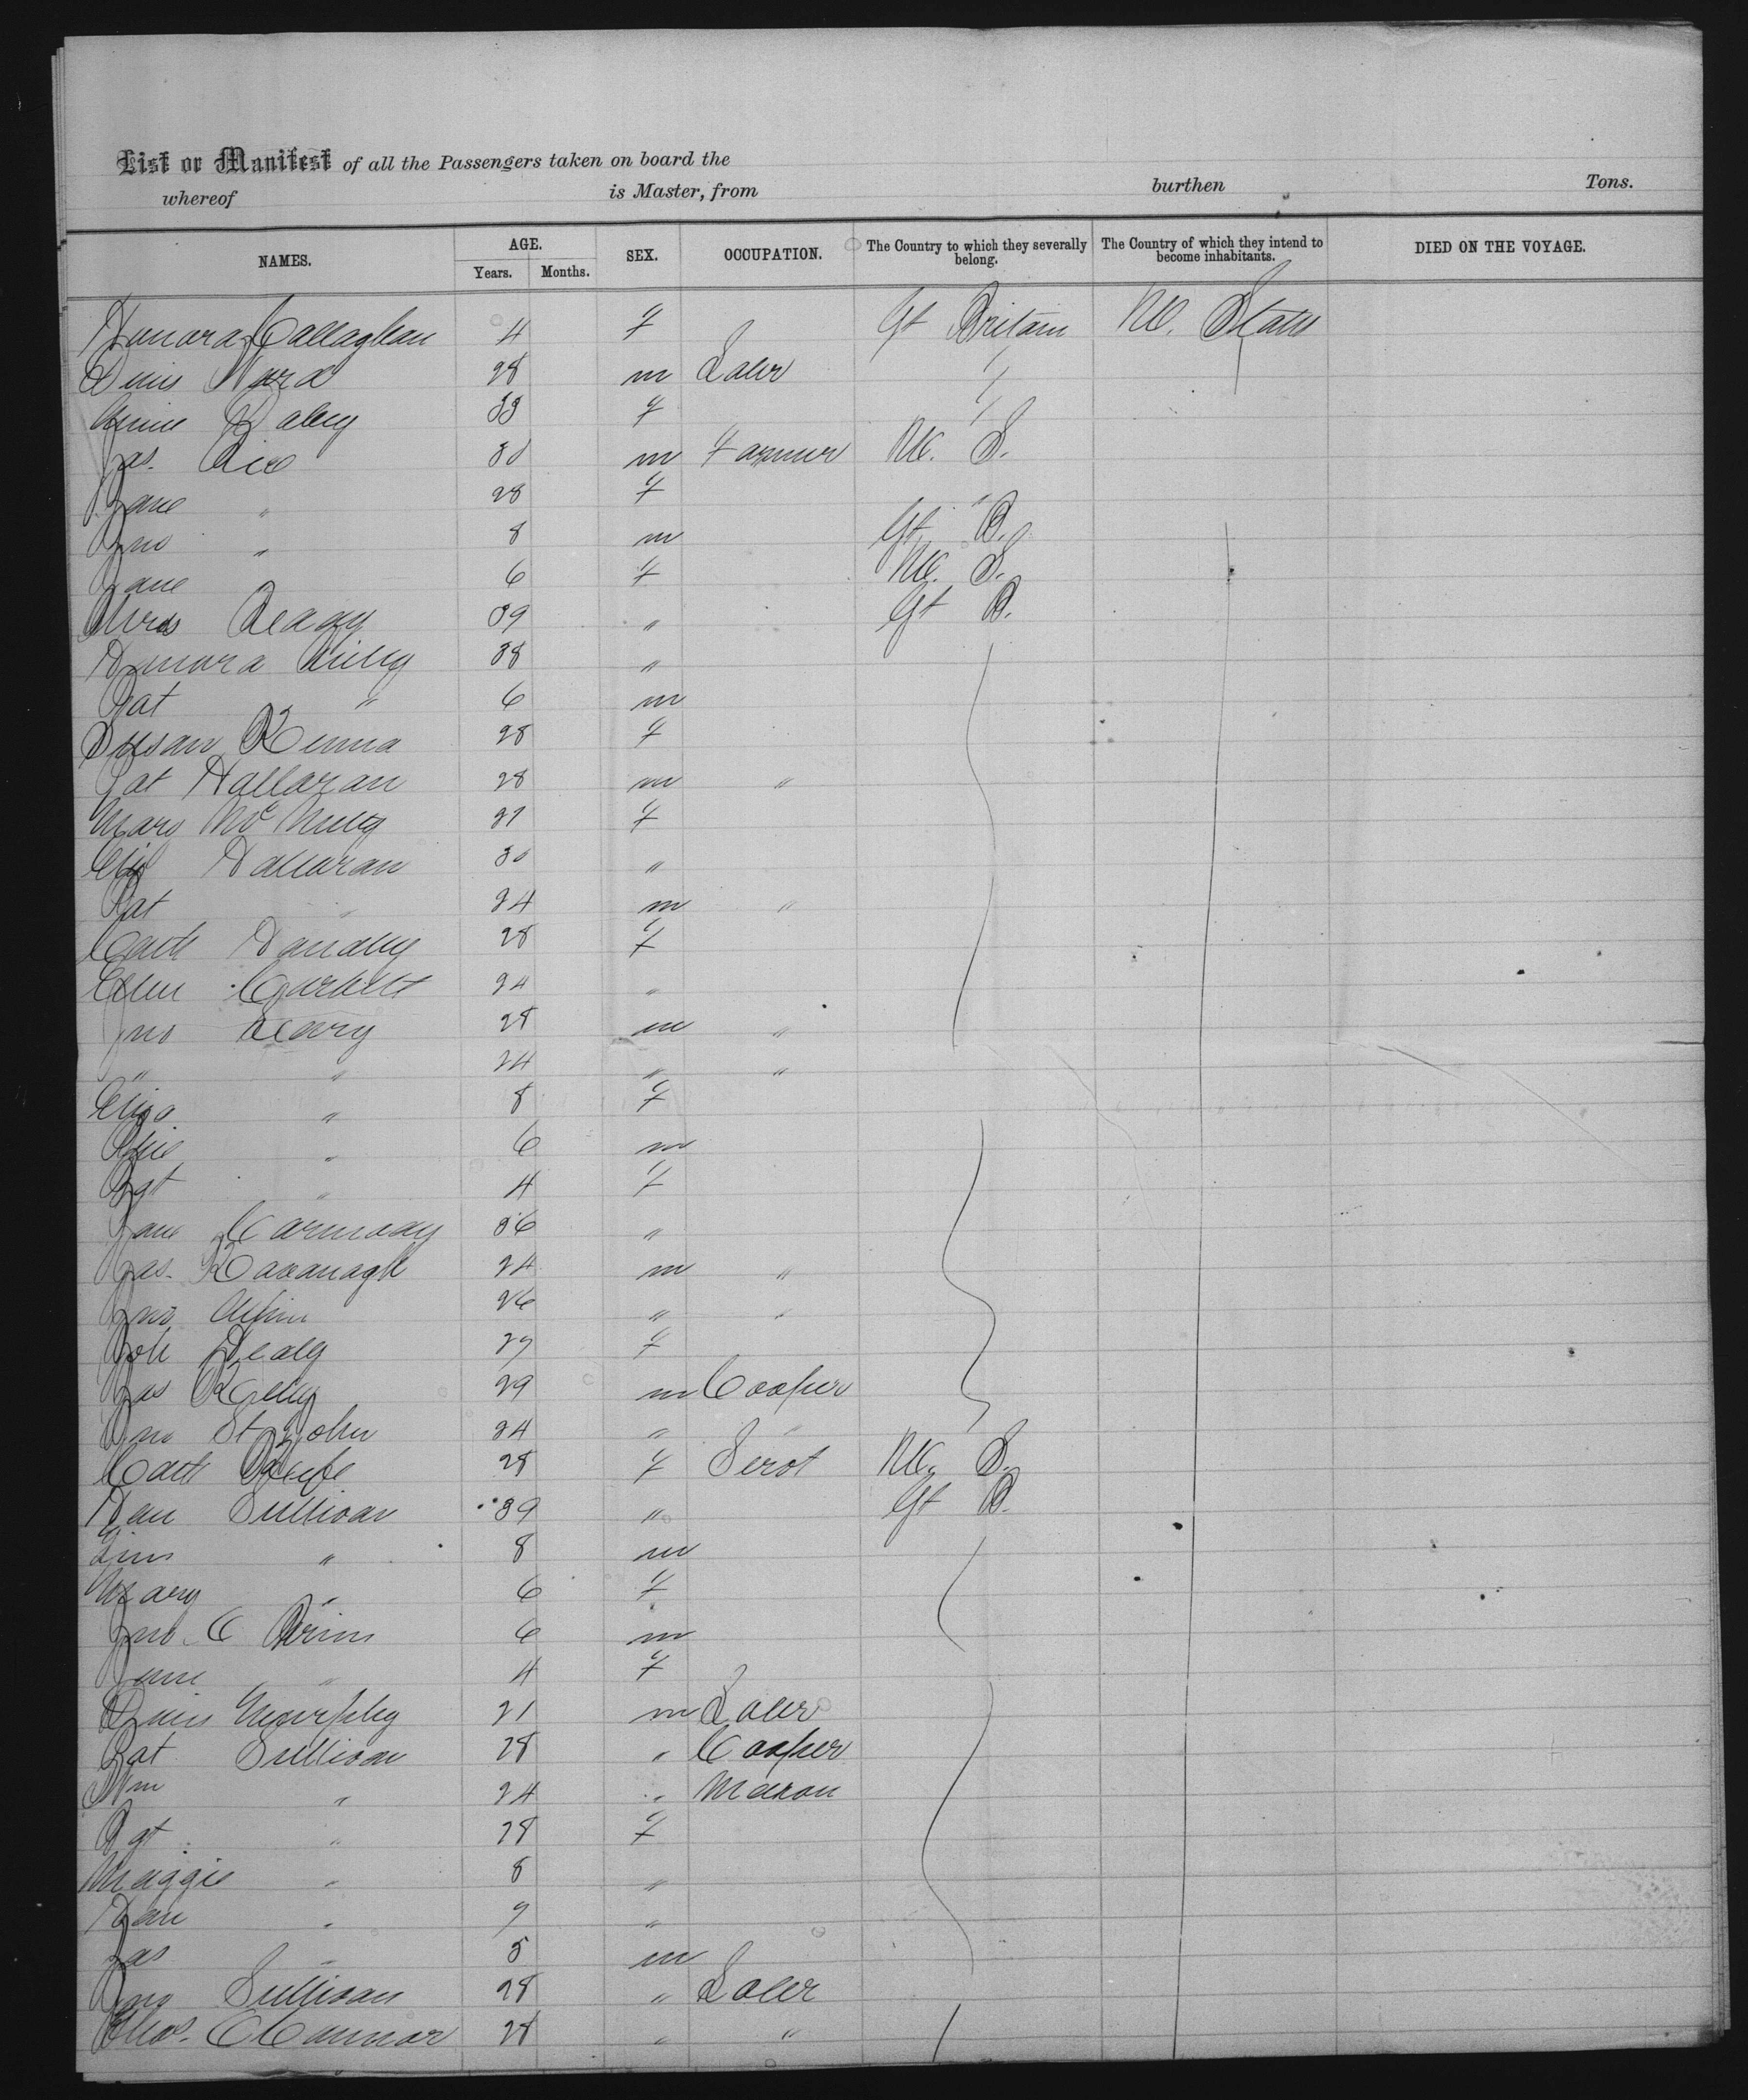 List or Manifest of all the Passengers taken on board the
whereof is Master, from burthen Tons.
NAMES. AGE. Years. Months. SEX. OCCUPATION. The Country to which they severally belong. The Country of which they intend to become inhabitants. DIED ON THE VOYAGE.
Honora Callaghan 4 f Gt Britain U. States
Denis Ward 28 m Labr "
Annie Daley 33 f "
Jas. Rice 30 m Farmer U. S.
Jane " 28 f "
Jno " 8 m Gt. B.
Jane 6 f U. S.
Mrs Reagy 39 " Gt B.
Honora 38 "
Pat " 6 m
Susan Kenna 28 f
Pat Hallaran 28 m "
Mary McNulty 27 f
Eliz Halloran 30 "
Pat " 24 m "
Cath 28 f
Ellen Corbett 24 "
Jno Leary 28 m "
" " 24 " "
Eliza " 8 f
" 6 m
Bgt " 4 f
Jane Carmody 36 "
Jas. Kavanagh 24 m "
Jno 26 " "
Joh Healy 27 f
Jas Kelly 29 m Cooper
Jno St John 24 " "
Cath Keefe 28 f Servt U. S.
Han Sullivan 39 " Gt B.
Jim " 8 m
Mary " 6 f
Jno O Brien 6 m
Jane " 4 f
Denis Murphy 21 m Labr
Pat Sullivan 28 " Cooper
Wm " 24 " Mason
Bgt " 28 f
Maggie " 8 "
Han " 7 "
Jas " 5 m
Jno Sullivan 28 " Labr
Thos. O Connor 28 " "